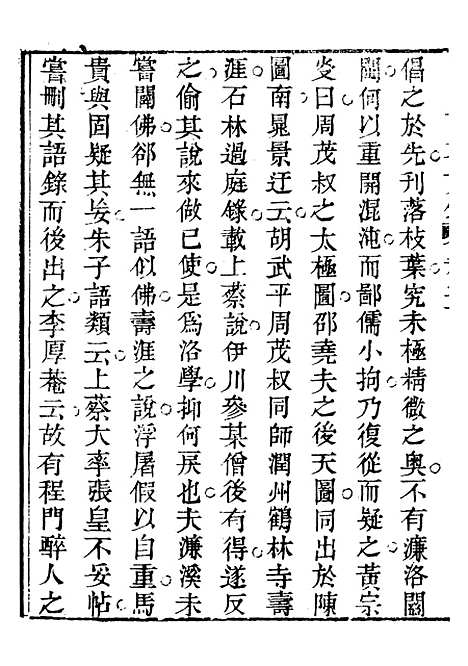 倡之於先刊落枝葉究未極精微之奧不有濂洛關
閩何以重開混沌而鄙儒小拘乃復從而疑之黃宗
炎曰周茂叔之太極圖邵堯夫之後天圖同出於陳
圖南晁景迂云胡武平周茂叔同師潤州鶴林寺壽
涯石林過庭錄載上蔡說伊川參某僧後有得遂反
之偷其說來做已使是為洛學抑何戾也夫濂溪未
嘗闢佛卻無一語似佛壽涯之說浮屠假以自重馬
貴與固疑其妄朱子語類云上蔡大率張皇不妥帖
嘗刪其語錄而後出之李厚菴云故有程門醉人之